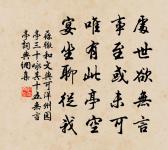 處世欲無言
事至或未可
唯有此亭空
宴坐聊從我
蘇轍和文與可洋州園
亭三十詠其十五無言
亭詞典網集